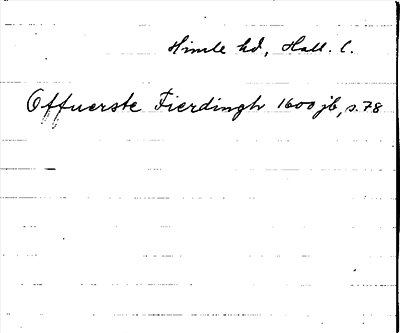 Himle hd, Hall. l.
Offuerste Fierdingh 1600 jb, s. 78